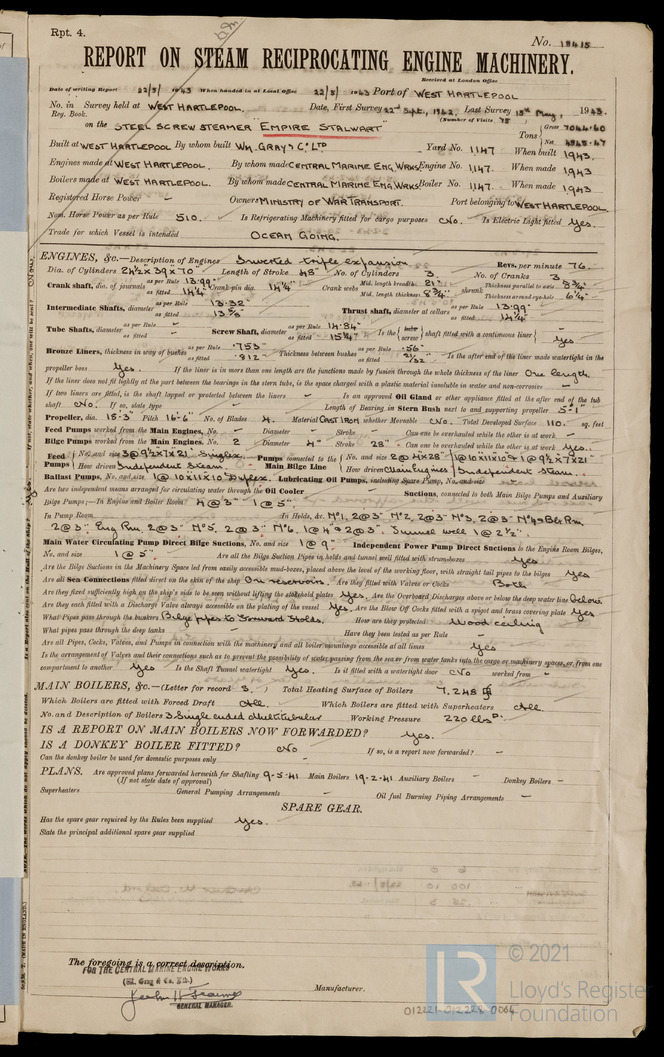 Rpt. 4.
No. 18415
REPORT ON STEAM RECIPROCATING ENGINE MACHINERY.
Received at London Office
Date of writing Report 22/5/1943 When handed in at Local Office 22/5/1943 Port of WEST HARTLEPOOL
No. in Survey held at WEST HARTLEPOOL. Date, First Survey 22nd Sept., 1942. Last Survey 15th May, 1943.
Reg. Book. (Number of Visits 75
on the STEEL SCREW STEAMER "EMPIRE STALWART" Tons Gross 7044.60 Net
Built at WEST HARTLEPOOL By whom built WM. GRAY & Co LTD Yard No. 1147 When built 1943.
Engines made at WEST HARTLEPOOL. By whom made CENTRAL MARINE ENG. WRKS Engine No. 1147. When made 1943
Boilers made at WEST HARTLEPOOL. By whom made CENTRAL MARINE ENG. WRKS Boiler No. 1147. When made 1943
Registered Horse Power - Owners MINISTRY OF WAR TRANSPORT. Port belonging to WEST HARTLEPOOL.
Nom. Horse Power as per Rule 510. Is Refrigerating Machinery fitted for cargo purposes No. Is Electric Light fitted Yes.
Trade for which Vessel is intended OCEAN GOING.
ENGINES, &c.—Description of Engines Inverted triple expansion Revs. per minute 76.
Dia. of Cylinders 24½" x 39" x 70" Length of Stroke 48" No. of Cylinders 3. No. of Cranks 3
Crank shaft, dia. of journals as per Rule 13.99" as fitted 14¼" Crank pin dia. 14¼" Crank webs Mid. length breadth 21" Mid. length thickness 8¾" shrunk Thickness parallel to axis 8¾" Thickness around eye-hole 6¼"
Intermediate Shafts, diameter as per Rule 13.32" as fitted 13⅝" Thrust shaft, diameter at collars as per Rule 13.99" as fitted 14¼"
Tube Shafts, diameter as per Rule - as fitted - Screw Shaft, diameter as per Rule 14.84" as fitted 15¼" Is the tube screw shaft fitted with a continuous liner Yes
Bronze Liners, thickness in way of bushes as per Rule .753" as fitted .812" Thickness between bushes as per Rule .56" as fitted 21/32" Is the after end of the liner made watertight in the
propeller boss Yes. If the liner is in more than one length are the junctions made by fusion through the whole thickness of the liner One length.
If the liner does not fit tightly at the part between the bearings in the stern tube, is the space charged with a plastic material insoluble in water and non-corrosive -
If two liners are fitted, is the shaft lapped or protected between the liners - Is an approved Oil Gland or other appliance fitted at the after end of the tub
shaft No. If so, state type - Length of Bearing in Stern Bush next to and supporting propeller 5'-1"
Propeller, dia. 15'-3" Pitch 16'-6" No. of Blades 4. Material CAST IRON whether Moveable No. Total Developed Surface 110. sq. feet
Feed Pumps worked from the Main Engines, No. - Diameter - Stroke - Can one be overhauled while the other is at work -
Bilge Pumps worked from the Main Engines, No. 2 Diameter 4" Stroke 28" Can one be overhauled while the other is at work Yes.
Feed Pumps No. and size 3 @ 9½" x 7" x 21" Simplex. Pumps connected to the Main Bilge Line No. and size 2 @ 4" x 28" / 1 @ 10" x 11" x 10" / 1 @ 9½" x 7" x 21"
How driven Independent Steam. How driven Main Engines / Independent Steam.
Ballast Pumps, No. and size 1 @ 10" x 11" x 10" Duplex. Lubricating Oil Pumps, including Spare Pump, No. and size -
Are two independent means arranged for circulating water through the Oil Cooler - Suctions, connected to both Main Bilge Pumps and Auxiliary
Bilge Pumps;—In Engine and Boiler Room 4 @ 3" 1 @ 5"
In Pump Room - In Holds, &c. No 1, 2 @ 3" No 2, 2 @ 3" No 3, 2 @ 3"
2 @ 3", Eng Rm, 2 @ 3" No 5, 2 @ 3" No 6, 1 @ 4" & 2 @ 3". Tunnel well 1 @ 2½".
Main Water Circulating Pump Direct Bilge Suctions, No. and size 1 @ 9" Independent Power Pump Direct Suctions to the Engine Room Bilges,
No. and size 1 @ 5" Are all the Bilge Suction Pipes in holds and tunnel well fitted with strum-boxes Yes
Are the Bilge Suctions in the Machinery Space led from easily accessible mud-boxes, placed above the level of the working floor, with straight tail pipes to the bilges Yes
Are all Sea Connections fitted direct on the skin of the ship On reservoirs. Are they fitted with Valves or Cocks Both
Are they fixed sufficiently high on the ship's side to be seen without lifting the stokehold plates Yes. Are the Overboard Discharges above or below the deep water line below.
Are they each fitted with a Discharge Valve always accessible on the plating of the vessel Yes. Are the Blow Off Cocks fitted with a spigot and brass covering plate Yes
What Pipes pass through the bunkers Bilge pipes to Forward Holds. How are they protected Wood ceiling
What pipes pass through the deep tanks - Have they been tested as per Rule -
Are all Pipes, Cocks, Valves, and Pumps in connection with the machinery and all boiler mountings accessible at all times Yes
Is the arrangement of Valves and their connections such as to prevent the possibility of water passing from the sea or from water tanks into the cargo or machinery spaces, or from one
compartment to another Yes Is the Shaft Tunnel watertight Yes. Is it fitted with a watertight door No worked from -
MAIN BOILERS, &c.—(Letter for record S.) Total Heating Surface of Boilers 7,248
Which Boilers are fitted with Forced Draft All. Which Boilers are fitted with Superheaters All.
No. and Description of Boilers 3 Single ended Multitubular Working Pressure 220 lbs
IS A REPORT ON MAIN BOILERS NOW FORWARDED? Yes.
IS A DONKEY BOILER FITTED? No If so, is a report now forwarded? -
Can the donkey boiler be used for domestic purposes only -
PLANS. Are approved plans forwarded herewith for Shafting 9-5-41 Main Boilers 19-2-41 Auxiliary Boilers - Donkey Boilers -
(If not state date of approval)
Superheaters General Pumping Arrangements - Oil fuel Burning Piping Arrangements -
SPARE GEAR.
Has the spare gear required by the Rules been supplied Yes.
State the principal additional spare gear supplied
The foregoing is a correct description.
FOR THE CENTRAL MARINE ENGINE WORKS
(Wm. Gray & Co. Ltd.)
GENERAL MANAGER.
Manufacturer.
012221-012228-0064
© 2021
LR Lloyd's Register
Foundation